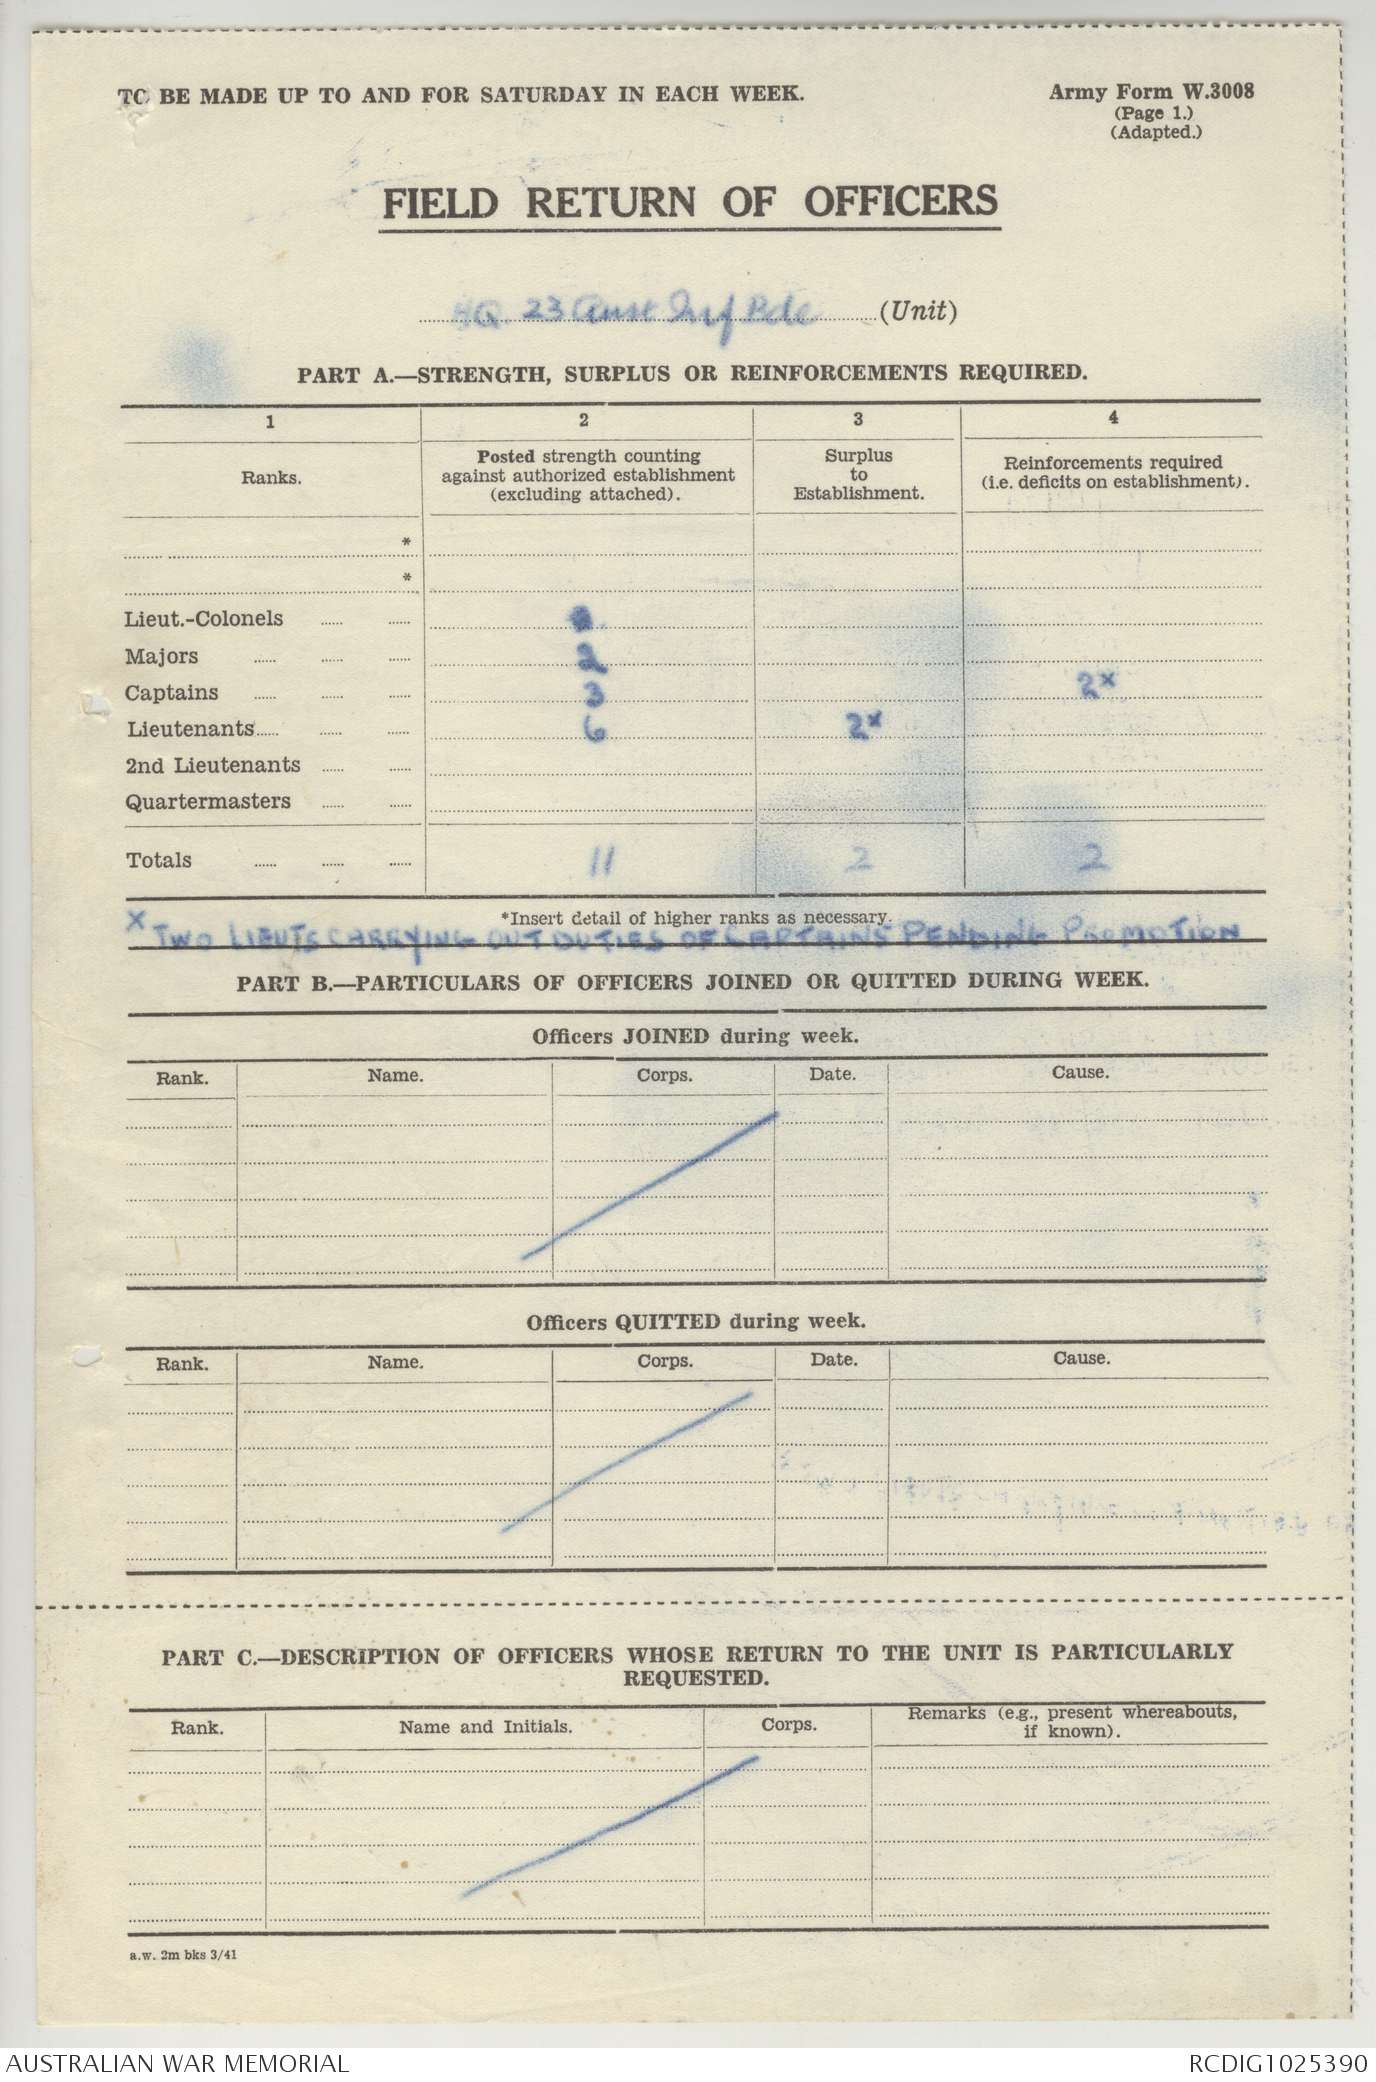 TO BE MADE UP TO AND FOR SATURDAY IN EACH WEEK.
Army Form W.3008
(Page 1.)
(Adapted.)
FIELD RETURN OF OFFICERS
HQ 23 Aust Inf Bde (Unit)
PART A.—STRENGTH, SURPLUS OR REINFORCEMENTS REQUIRED.
1 2 3 4
Ranks.
Posted strength counting
against authorized establishment
(excluding attached).
Surplus
to
Establishment.
Reinforcements required
(i.e. deficits on establishment).
*
*
Lieut.-Colonels
Majors 2
Captains 3 2x
Lieutenants 6 2x
2nd Lieutenants
Quartermasters
Totals 11 2 2
*Insert detail of higher ranks as necessary.
x TWO LIEUTS CARRYING OUT DUTIES OF CAPTAINS PENDING PROMOTION
PART B.—PARTICULARS OF OFFICERS JOINED OR QUITTED DURING WEEK.
Officers JOINED during week.
Rank. Name. Corps. Date. Cause.
Officers QUITTED during week.
Rank. Name. Corps. Date. Cause.
PART C.—DESCRIPTION OF OFFICERS WHOSE RETURN TO THE UNIT IS PARTICULARLY
REQUESTED.
Rank. Name and Initials. Corps. Remarks (e.g., present whereabouts,
if known).
a.w. 2m bks 3/41
AUSTRALIAN WAR MEMORIAL
RCDIG1025390